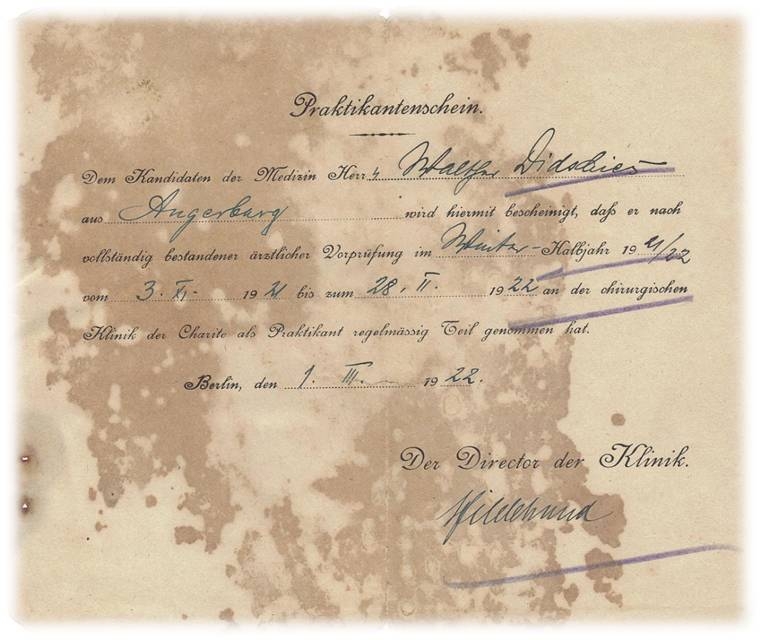 Praktikantenschein.
Dem Kandidaten der Medizin Herrn Walther Didschies
aus Angerburg wird hiermit bescheinigt, daß er nach
vollständig bestandener ärztlicher Vorprüfung im Winter-Halbjahr 1921/22
vom 3. XI. 1921 bis zum 28. II. 1922 an der chirurgischen
Klinik der Charite als Praktikant regelmässig Teil genommen hat.
Berlin, den 1. III. 1922.
Der Director der Klinik.
Hildebrand